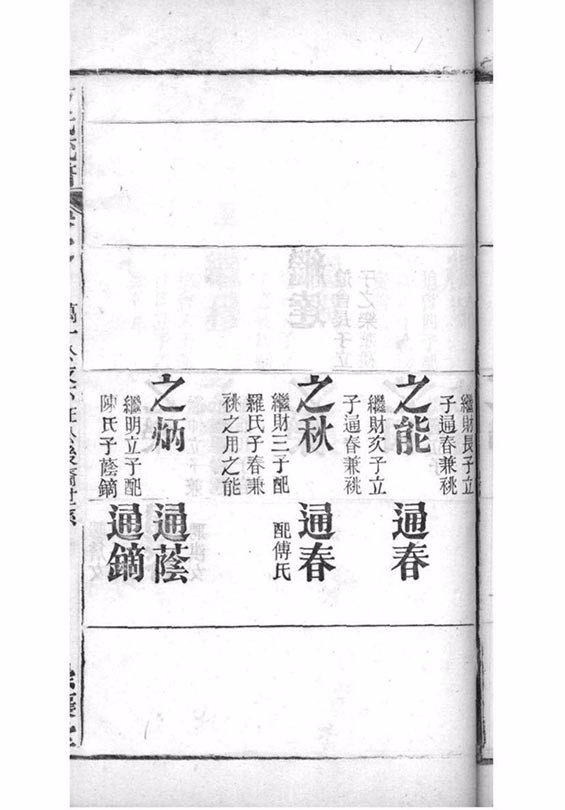 繼財長子立
子通春兼祧
之能
通春
繼財次子立
子通春兼祧
之秋
通春
繼財三子配
羅氏子春兼
祧之用之能
配傅氏
之炳
通蔭
繼明立子配
陳氏子蔭鏑
通鏑